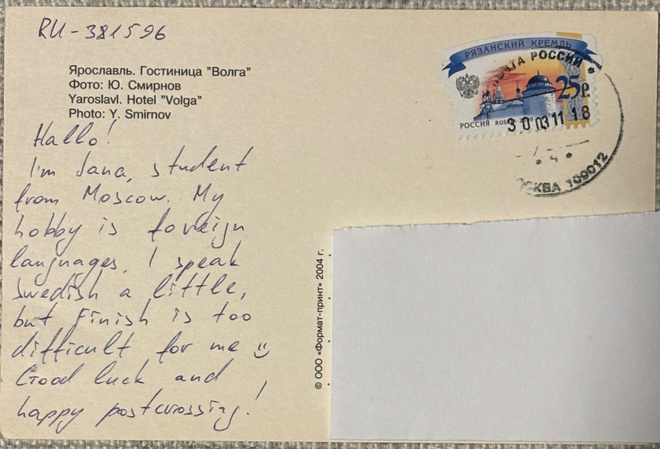 RU-381596
Ярославль. Гостиница "Волга"
Фото: Ю. Смирнов
Yaroslavl. Hotel "Volga"
Photo: Y. Smirnov
Hallo!
I'm Jana, student
from Moscow. My
hobby is foreign
languages. I speak
Swedish a little,
but Finish is too
difficult for me ☺
Good luck and
happy postcrossing!
© ООО «Формат-принт» 2004 г.
РЯЗАНСКИЙ КРЕМЛЬ
25р
РОССИЯ
ПОЧТА РОССИИ
30 03 11 18
МОСКВА 109012